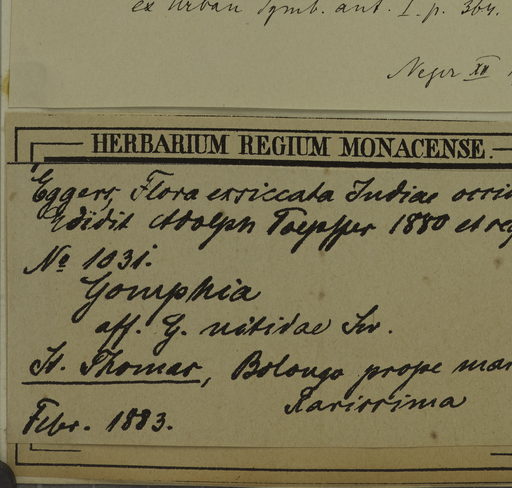 ex Urban Symb. ant. I. p. 364.
Neger XII
HERBARIUM REGIUM MONACENSE.
Eggers, Flora exsiccata Indiae occi
Edidit Adolph Toepffer 1880 et seq
No 1031.
Gomphia
aff. G. nitidae Sw.
St. Thomas, Bolongo prope mar
Rarissima
Febr. 1883.